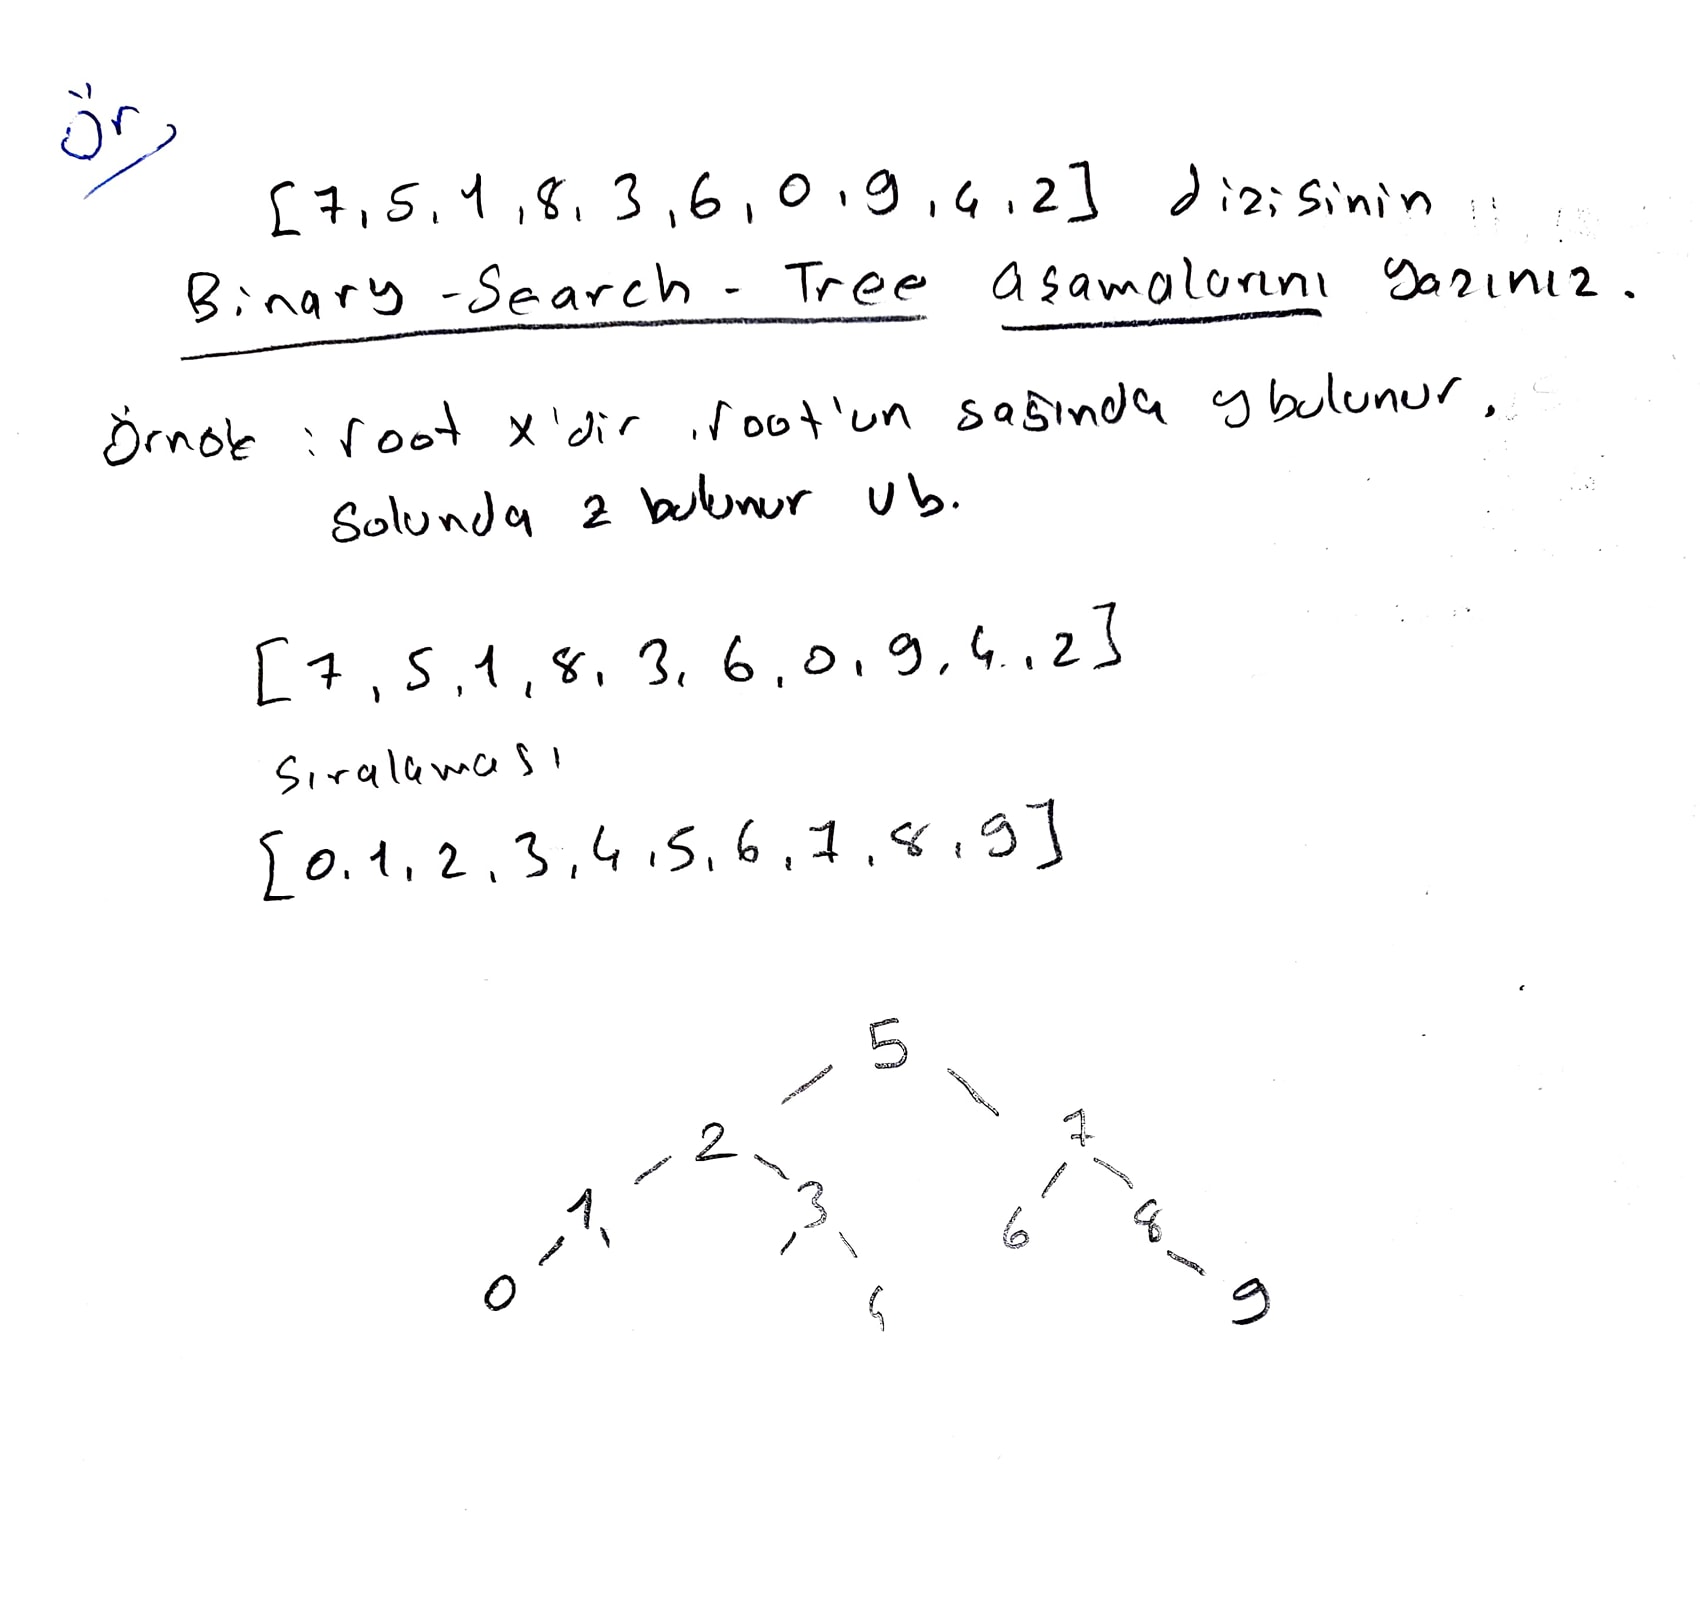 Ör,
[7, 5, 1, 8, 3, 6, 0, 9, 4, 2] dizisinin
Binary -Search - Tree aşamalarını yazınız.
Örnek : root x'dir .root'un sağında y bulunur,
Solunda z bulunur vb.
[7, 5, 1, 8, 3, 6, 0, 9, 4, 2]
Sıralaması
[0, 1, 2, 3, 4, 5, 6, 7, 8, 9]
5
2 7
1 3 6 8
0 4 9